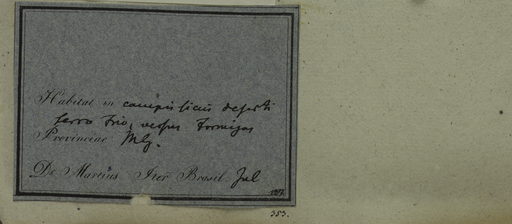 Habitat in campis siccis deserti
Serro Frio, versus Formigas
Provinciae Mlg.
De Martius Iter Brasil. Jul
353.